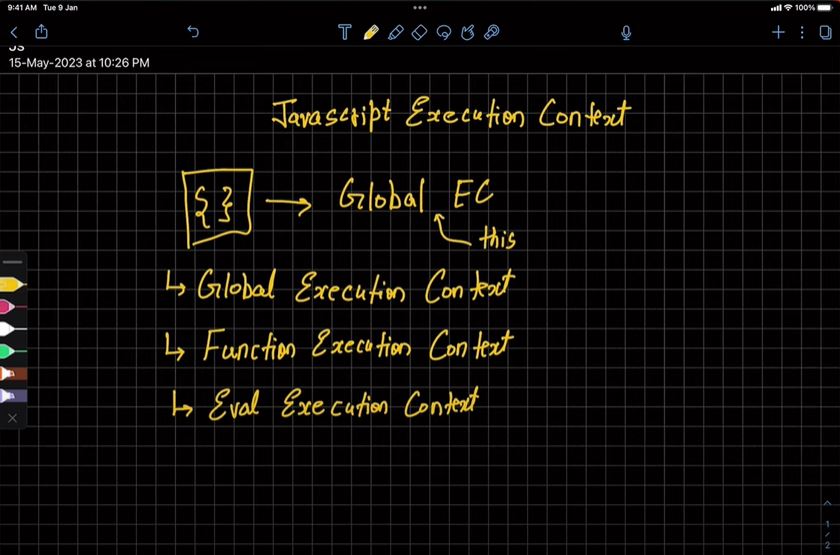 9:41 AM Tue 9 Jan
100%
JS
15-May-2023 at 10:26 PM
Javascript Execution Context
{ } → Global EC
this
↳ Global Execution Context
↳ Function Execution Context
↳ Eval Execution Context
1
2